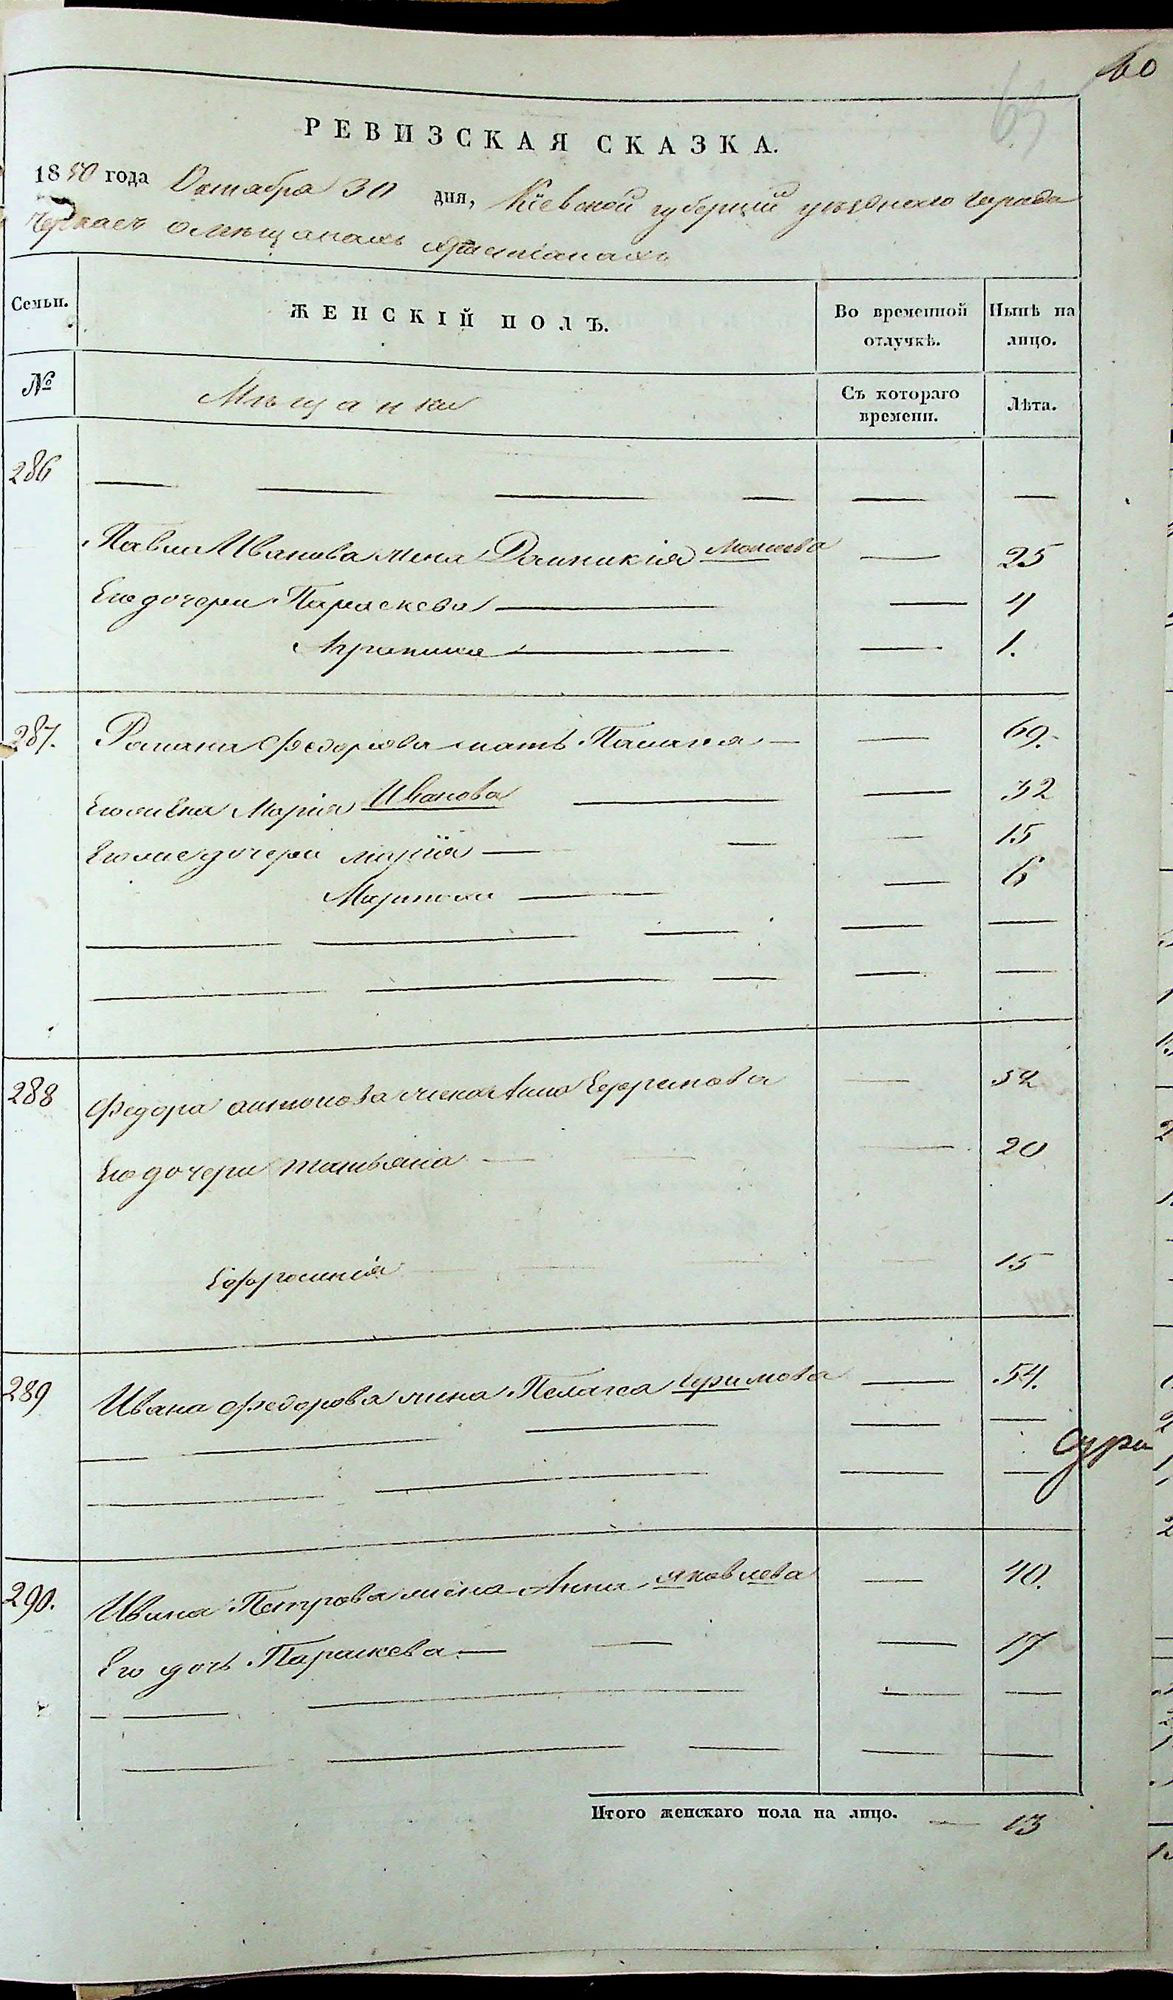 60
63
РЕВИЗСКАЯ СКАЗКА.
1850 года Октабра 30 дня, Кіевской губерніи уѣзднаго города
Черкасъ о мѣщанахъ христіанахъ
Семьи. ЖЕНСКІЙ ПОЛЪ. Во временной отлучкѣ. Нынѣ на лицо.
№ Мѣщанки Съ котораго времени. Лѣта.
286 — — — — — —
Павла Иванова жена Домникія Моисеева — 25
Его дочери Параскева — — 4
Агрипина — — 1.
287. Романа Федорова мать Палагея — — 69.
Его жена Марія Иванова — — 32
Его же дочери Марія — — — 15
Марина — — 6
— — — — —
— — — — —
288 Федора Антонова жена Анна Ефримова — 52
Его дочери Татьяна — — — 20
Ефросинія — — — 15
289 Ивана Федорова жена Пелагея Ефимова — 54.
— — — — —
Сури
— — — —
290. Ивана Петрова жена Анна Яковлева — 40.
Его дочь Параскева — — — 17
— — — — —
— — — — —
Итого женскаго пола на лицо. — 13